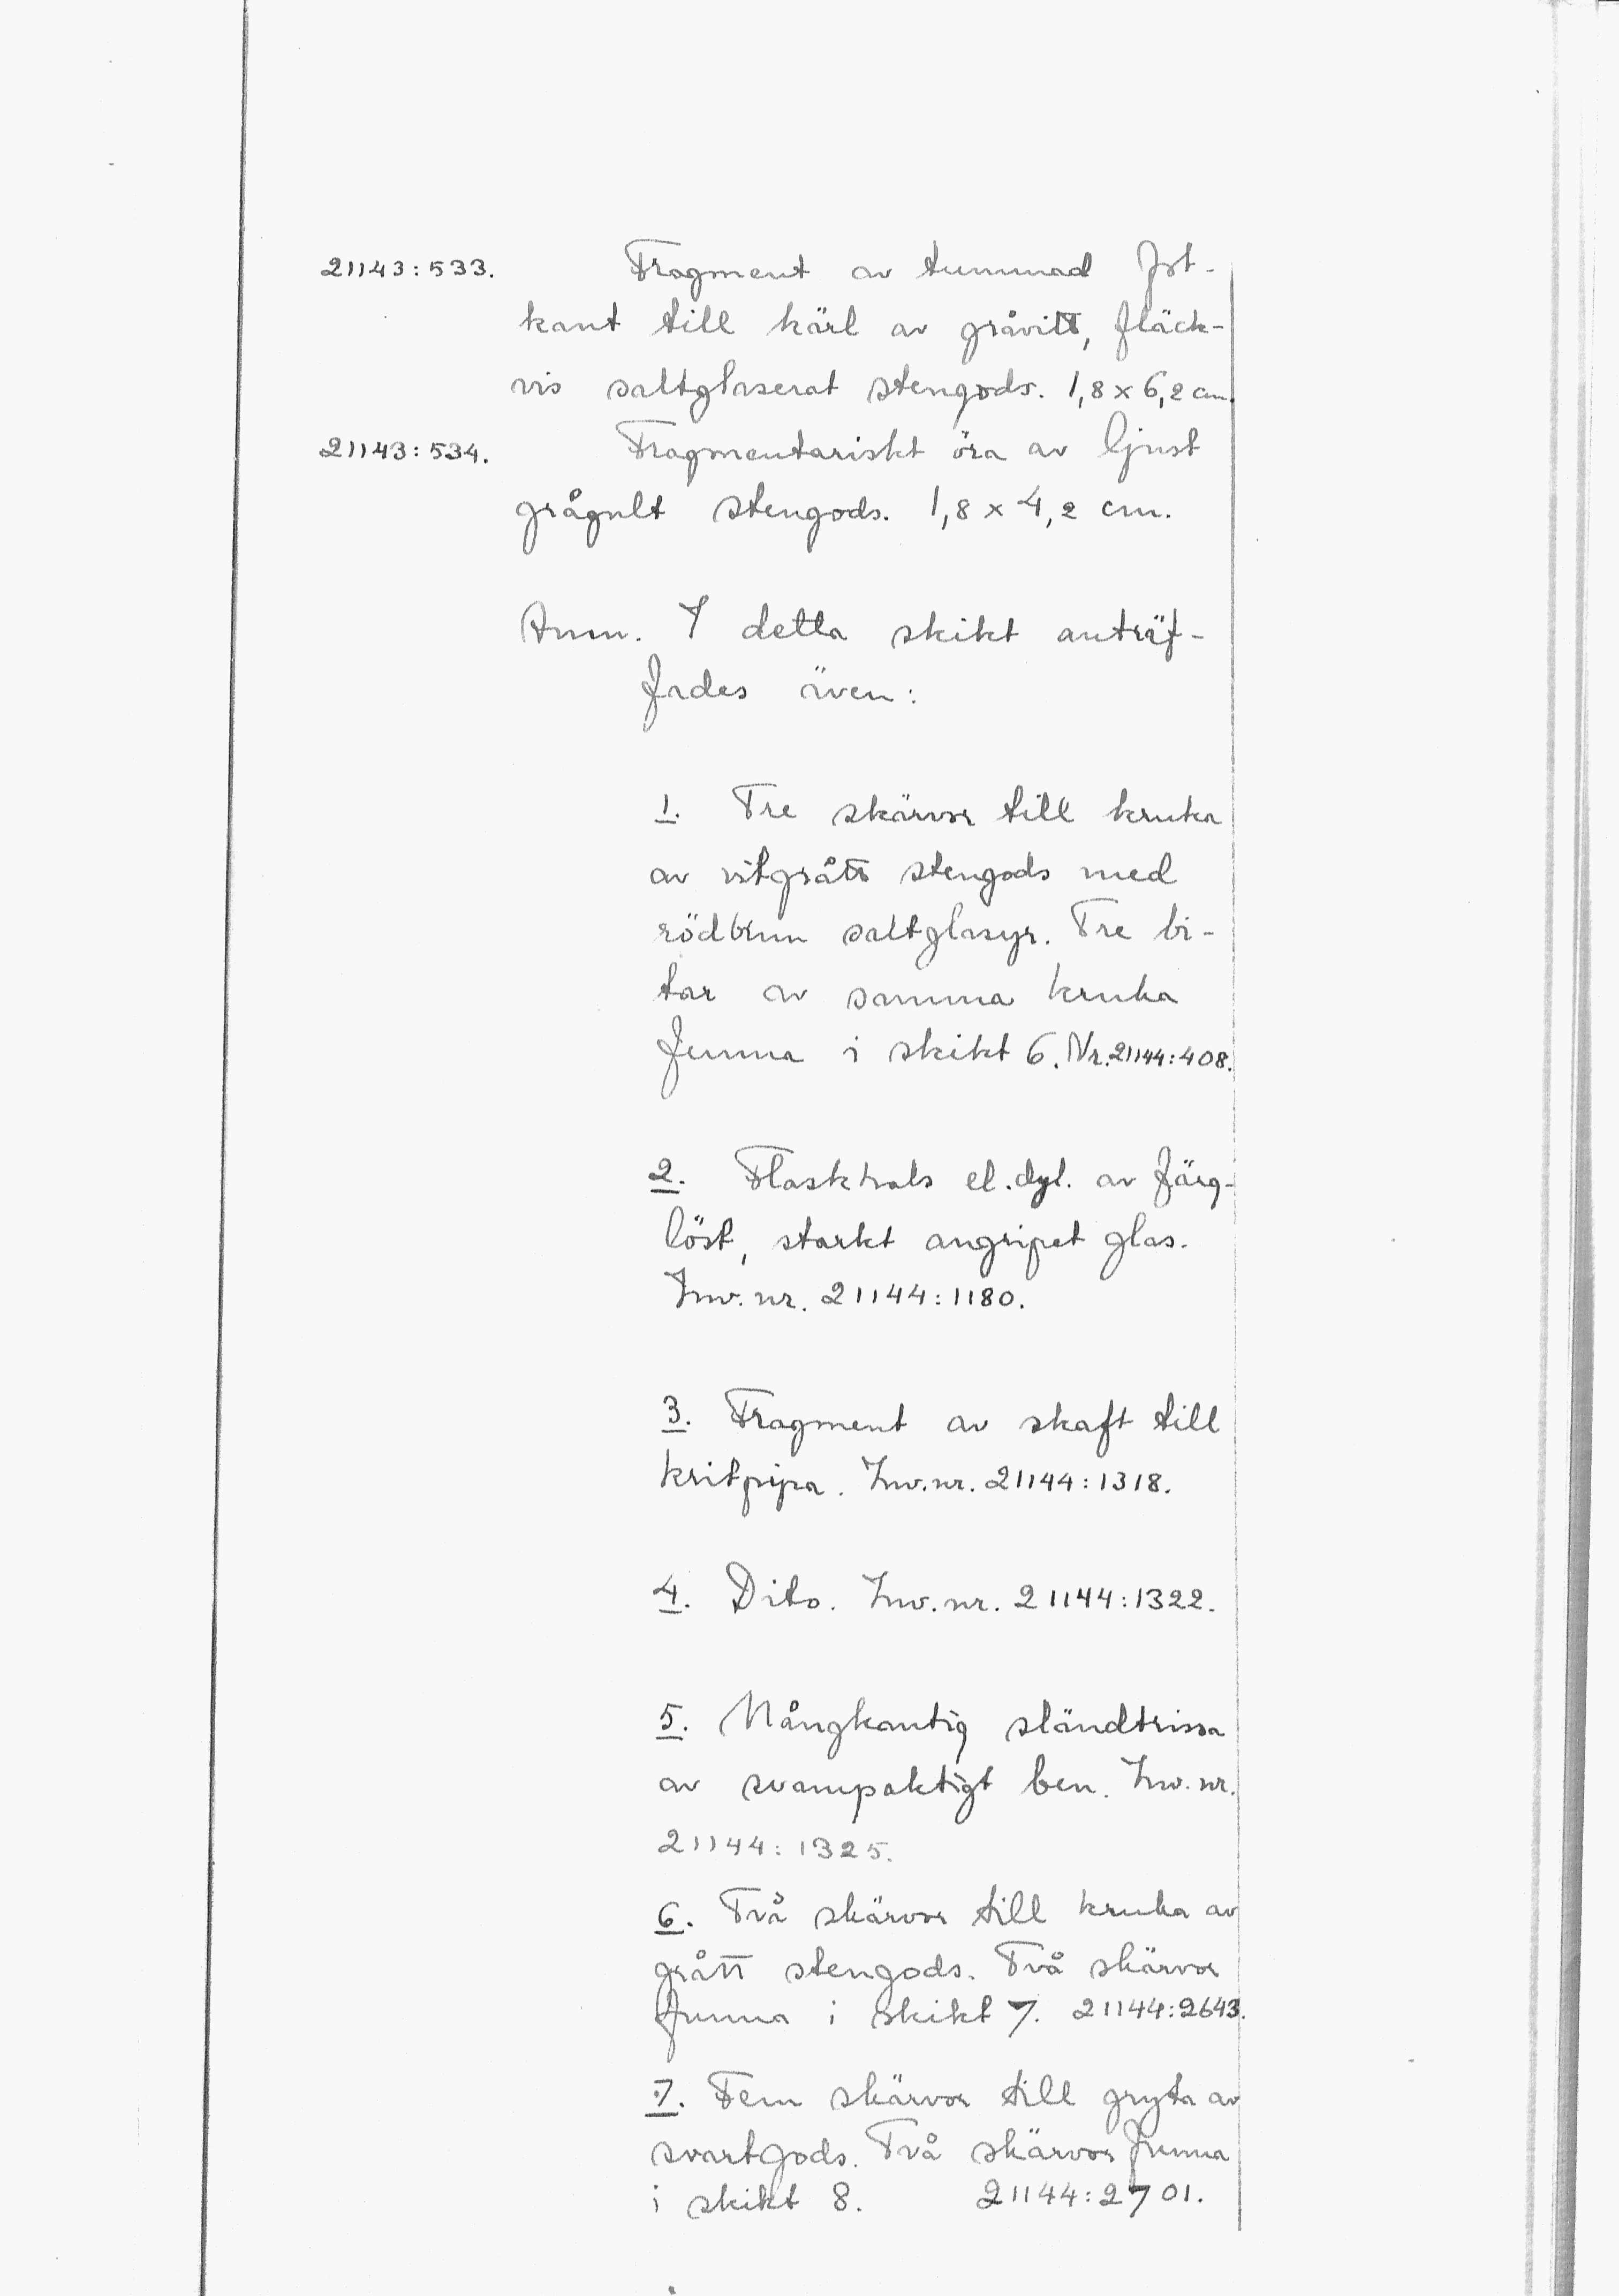 21143:533. Fragment av tummad fot-
kant till kärl av gråvitt, fläck-
vis saltglaserat stengods. 1,8 x 6,2 cm.
21143:534. Fragmentariskt öra av ljust
grågult stengods. 1,8 x 4,2 cm.
Anm. I detta skikt anträf-
fades även:
1. Tre skärvor till kruka
av vitgrått stengods med
rödbrun saltglasyr. Tre bi-
tar av samma kruka
funna i skikt 6. Nr. 21144:408.
2. Flaskhals el. dyl. av färg-
löst, starkt angripet glas.
Inv. nr. 21144:1180.
3. Fragment av skaft till
kritpipa. Inv. nr. 21144:1318.
4. Dito. Inv. nr. 21144:1322.
5. Mångkantig sländtrissa
av svampaktigt ben. Inv. nr.
21144:1325.
6. Två skärvor till kruka av
grått stengods. Två skärvor
funna i skikt 7. 21144:2643.
7. Fem skärvor till gryta av
svartgods. Två skärvor funna
i skikt 8. 21144:2701.